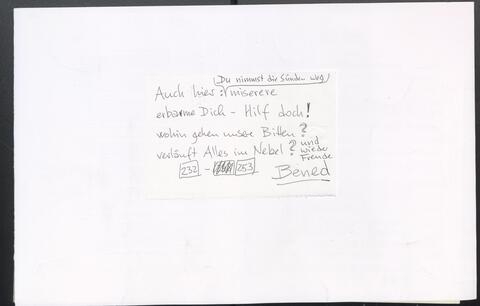 Du nimmst die Sünden weg
Auch hier: miserere
erbarme Dich - Hilf doch!
wohin gehen unsere Bitten?
verläuft Alles im Nebel? und
wieder
Freude
232 - 253
Bened